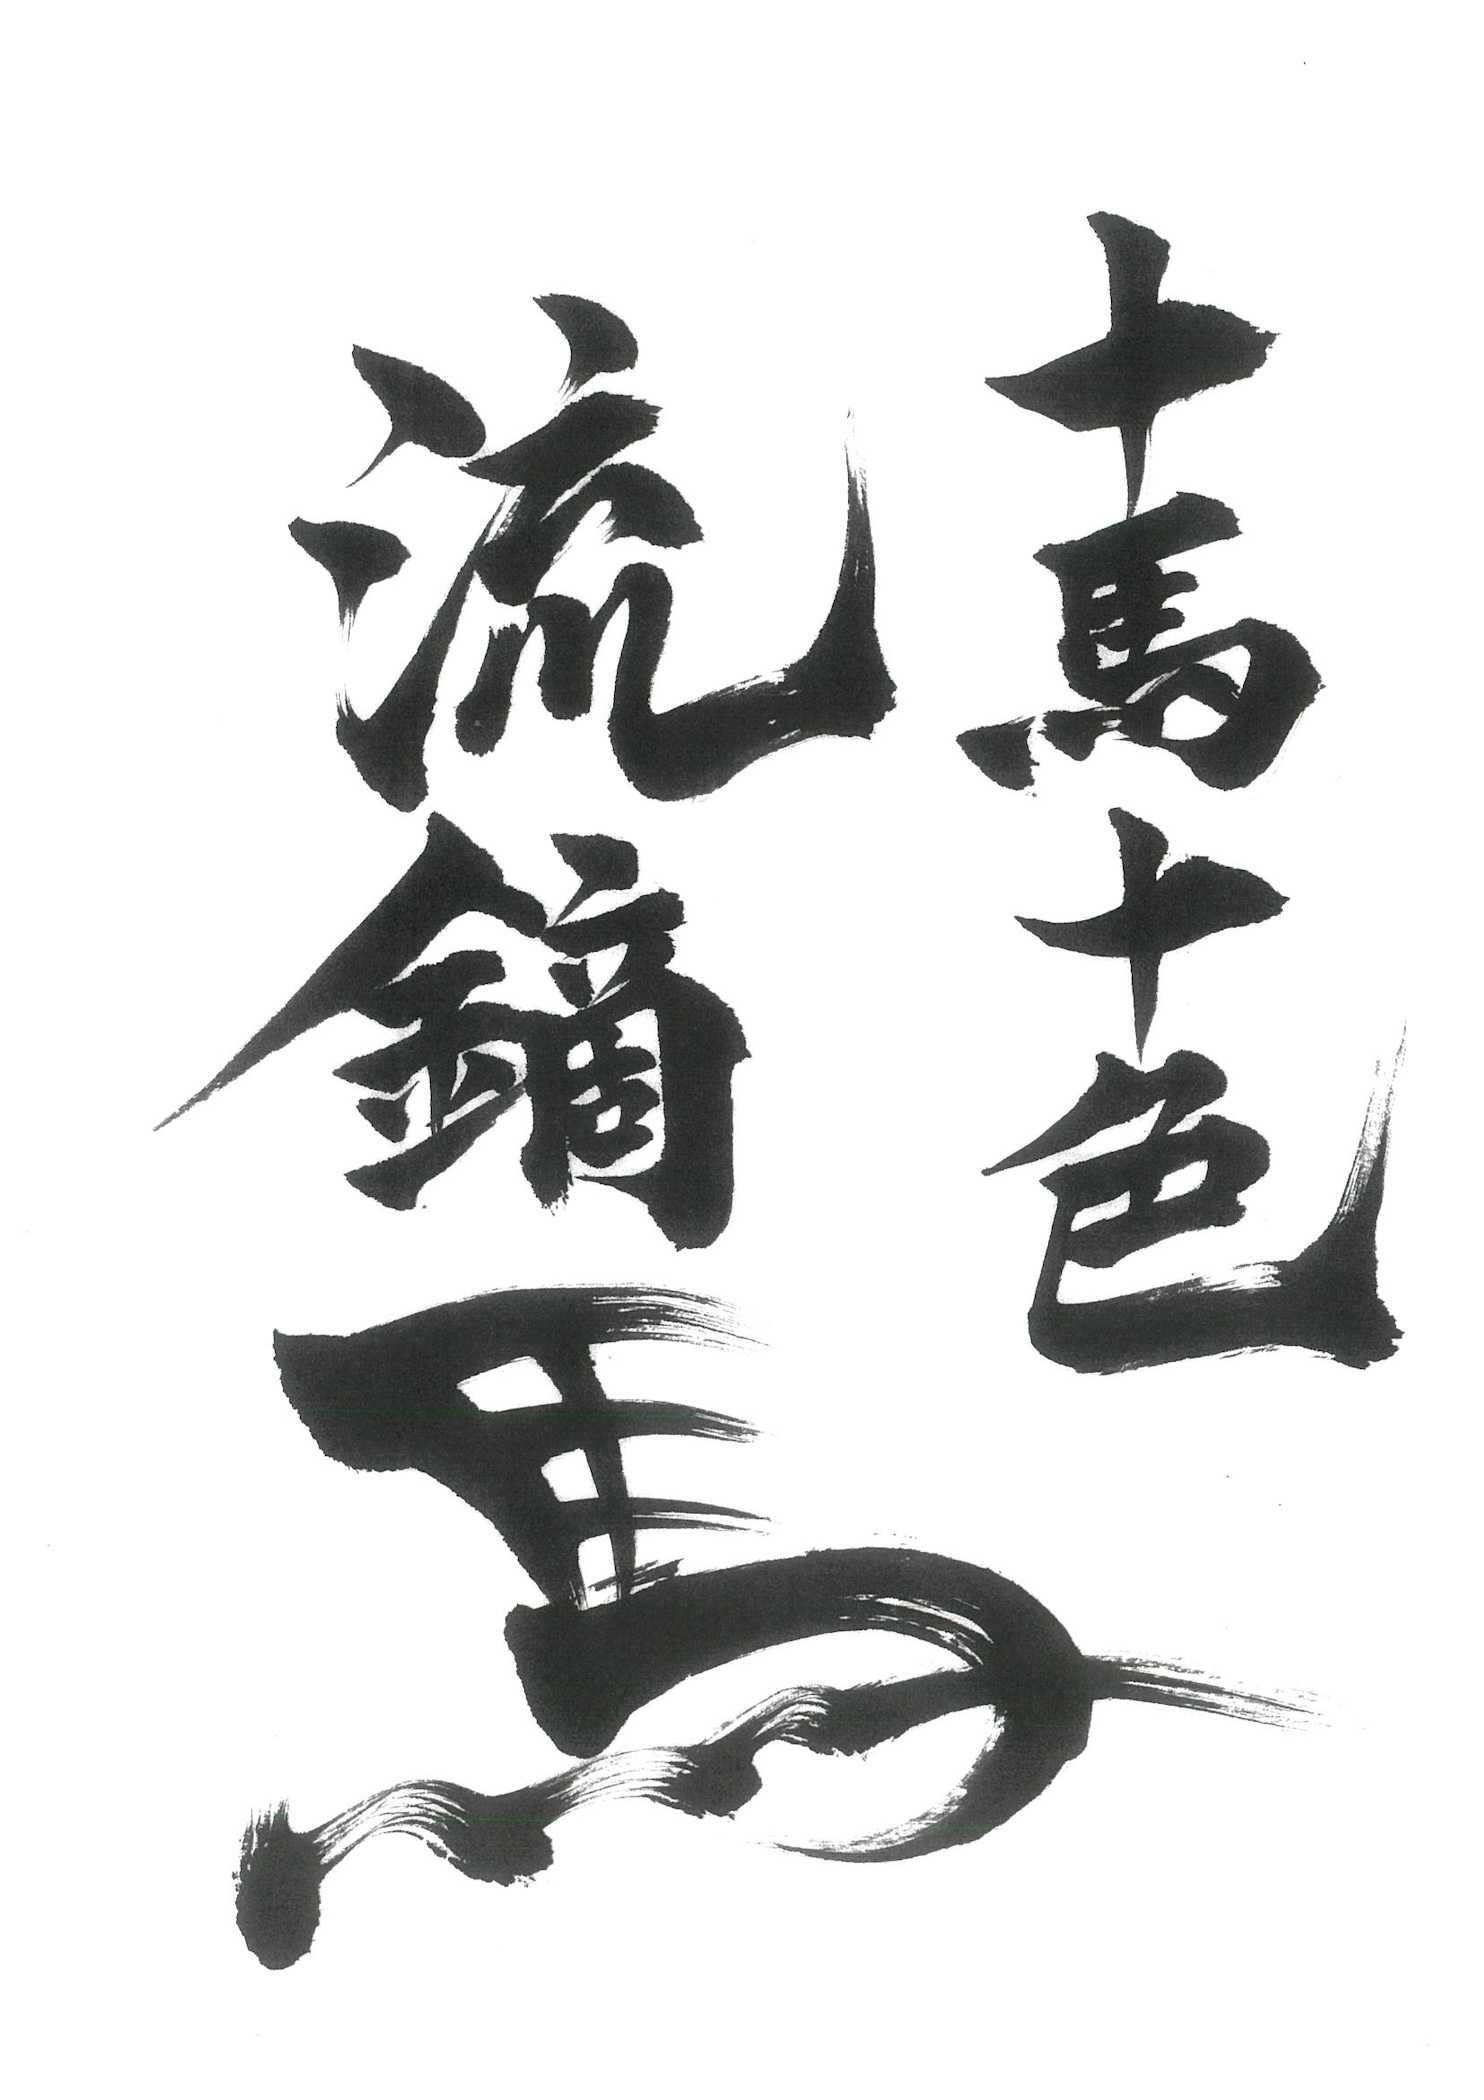 十馬十色
流鏑馬